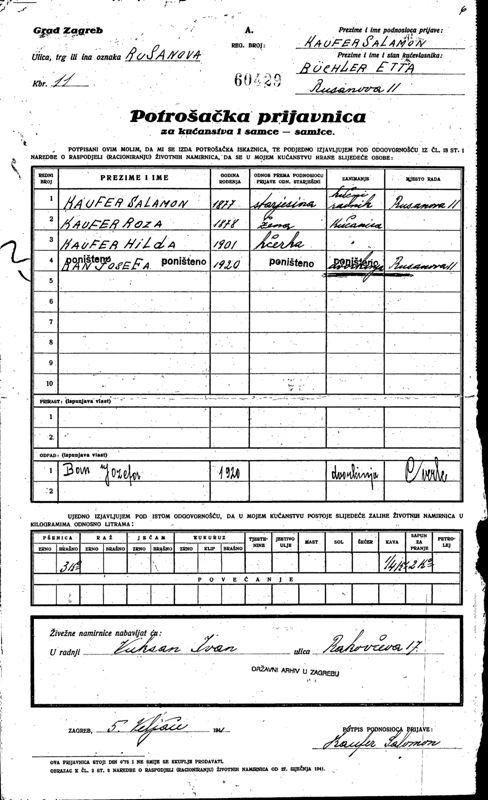 Grad Zagreb
Ulica, trg ili ina oznaka RUŠANOVA
Kbr. 11
A.
REG. BROJ:
60429
Prezime i ime podnosioca prijave:
KAUFER SALAMON
Prezime i ime i stan kućevlasnika:
BÜCHLER ETTA
Rusanova 11
Potrošačka prijavnica
za kućanstva i samce — samice.
POTPISANI OVIM MOLIM, DA MI SE IZDA POTROŠAČKA ISKAZNICA, TE PODJEDNO IZJAVLJUJEM POD ODGOVORNOŠĆU IZ ČL. 18 ST. 1
NAREDBE O RASPODJELI (RACIONIRANJU) ŽIVOTNIH NAMIRNICA, DA SE U MOJEM KUĆANSTVU HRANE SLIJEDEĆE OSOBE:
REDNI BROJ PREZIME I IME GODINA ROĐENJA ODNOS PREMA PODNOSIOCU PRIJAVE ODN. STARJEŠINI ZANIMANJE MJESTO RADA
1 KAUFER SALAMON 1877 starješina radnik Rusanova 11
2 KAUFER ROZA 1878 žena kućanica
3 KAUFER HILDA 1901 kćerka "
4 JOSEFA poništeno poništeno 1920 poništeno poništeno Rusanova 11
5
6
7
8
9
10
PRIRAST: (ispunjava vlast)
1
2.
OTPAD: (ispunjava vlast)
1 1920 dvorkinja
2
UJEDNO IZJAVLJUJEM POD ISTOM ODGOVORNOŠĆU, DA U MOJEM KUĆANSTVU POSTOJE SLIJEDEĆE ZALIHE ŽIVOTNIH NAMIRNICA U
KILOGRAMIMA ODNOSNO LITRAMA:
PŠENICA RAŽ JEČAM KUKURUZ TJESTENINE JESTIVO ULJE MAST SOL ŠEĆER KAVA SAPUN ZA PRANJE PETROLEJ
ZRNO BRAŠNO ZRNO BRAŠNO ZRNO BRAŠNO ZRNO KLIP BRAŠNO
3 kg 1/4 kg 2 kg
POVEĆANJE
Živežne namirnice nabavljat ću:
U radnji Vuksan Ivan ulica Rakovčeva 17.
DRŽAVNI ARHIV U ZAGREBU
ZAGREB, 5. Veljače 194
POTPIS PODNOSIOCA PRIJAVE:
Kaufer Salomon
OVA PRIJAVNICA STOJI DIN 0'75 I NE SMIJE SE SKUPLJE PRODAVATI.
OBRAZAC K ČL. 2 ST. 2 NAREDBE O RASPODJELI (RACIONIRANJU) ŽIVOTNIH NAMIRNICA OD 27. SIJEČNJA 1941.